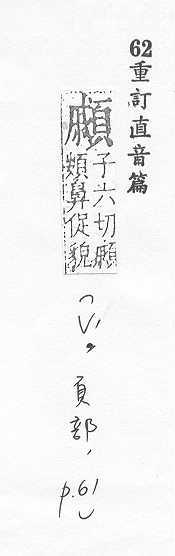 62重訂直音篇
子六切
頞鼻促貌
頁部, p.61)